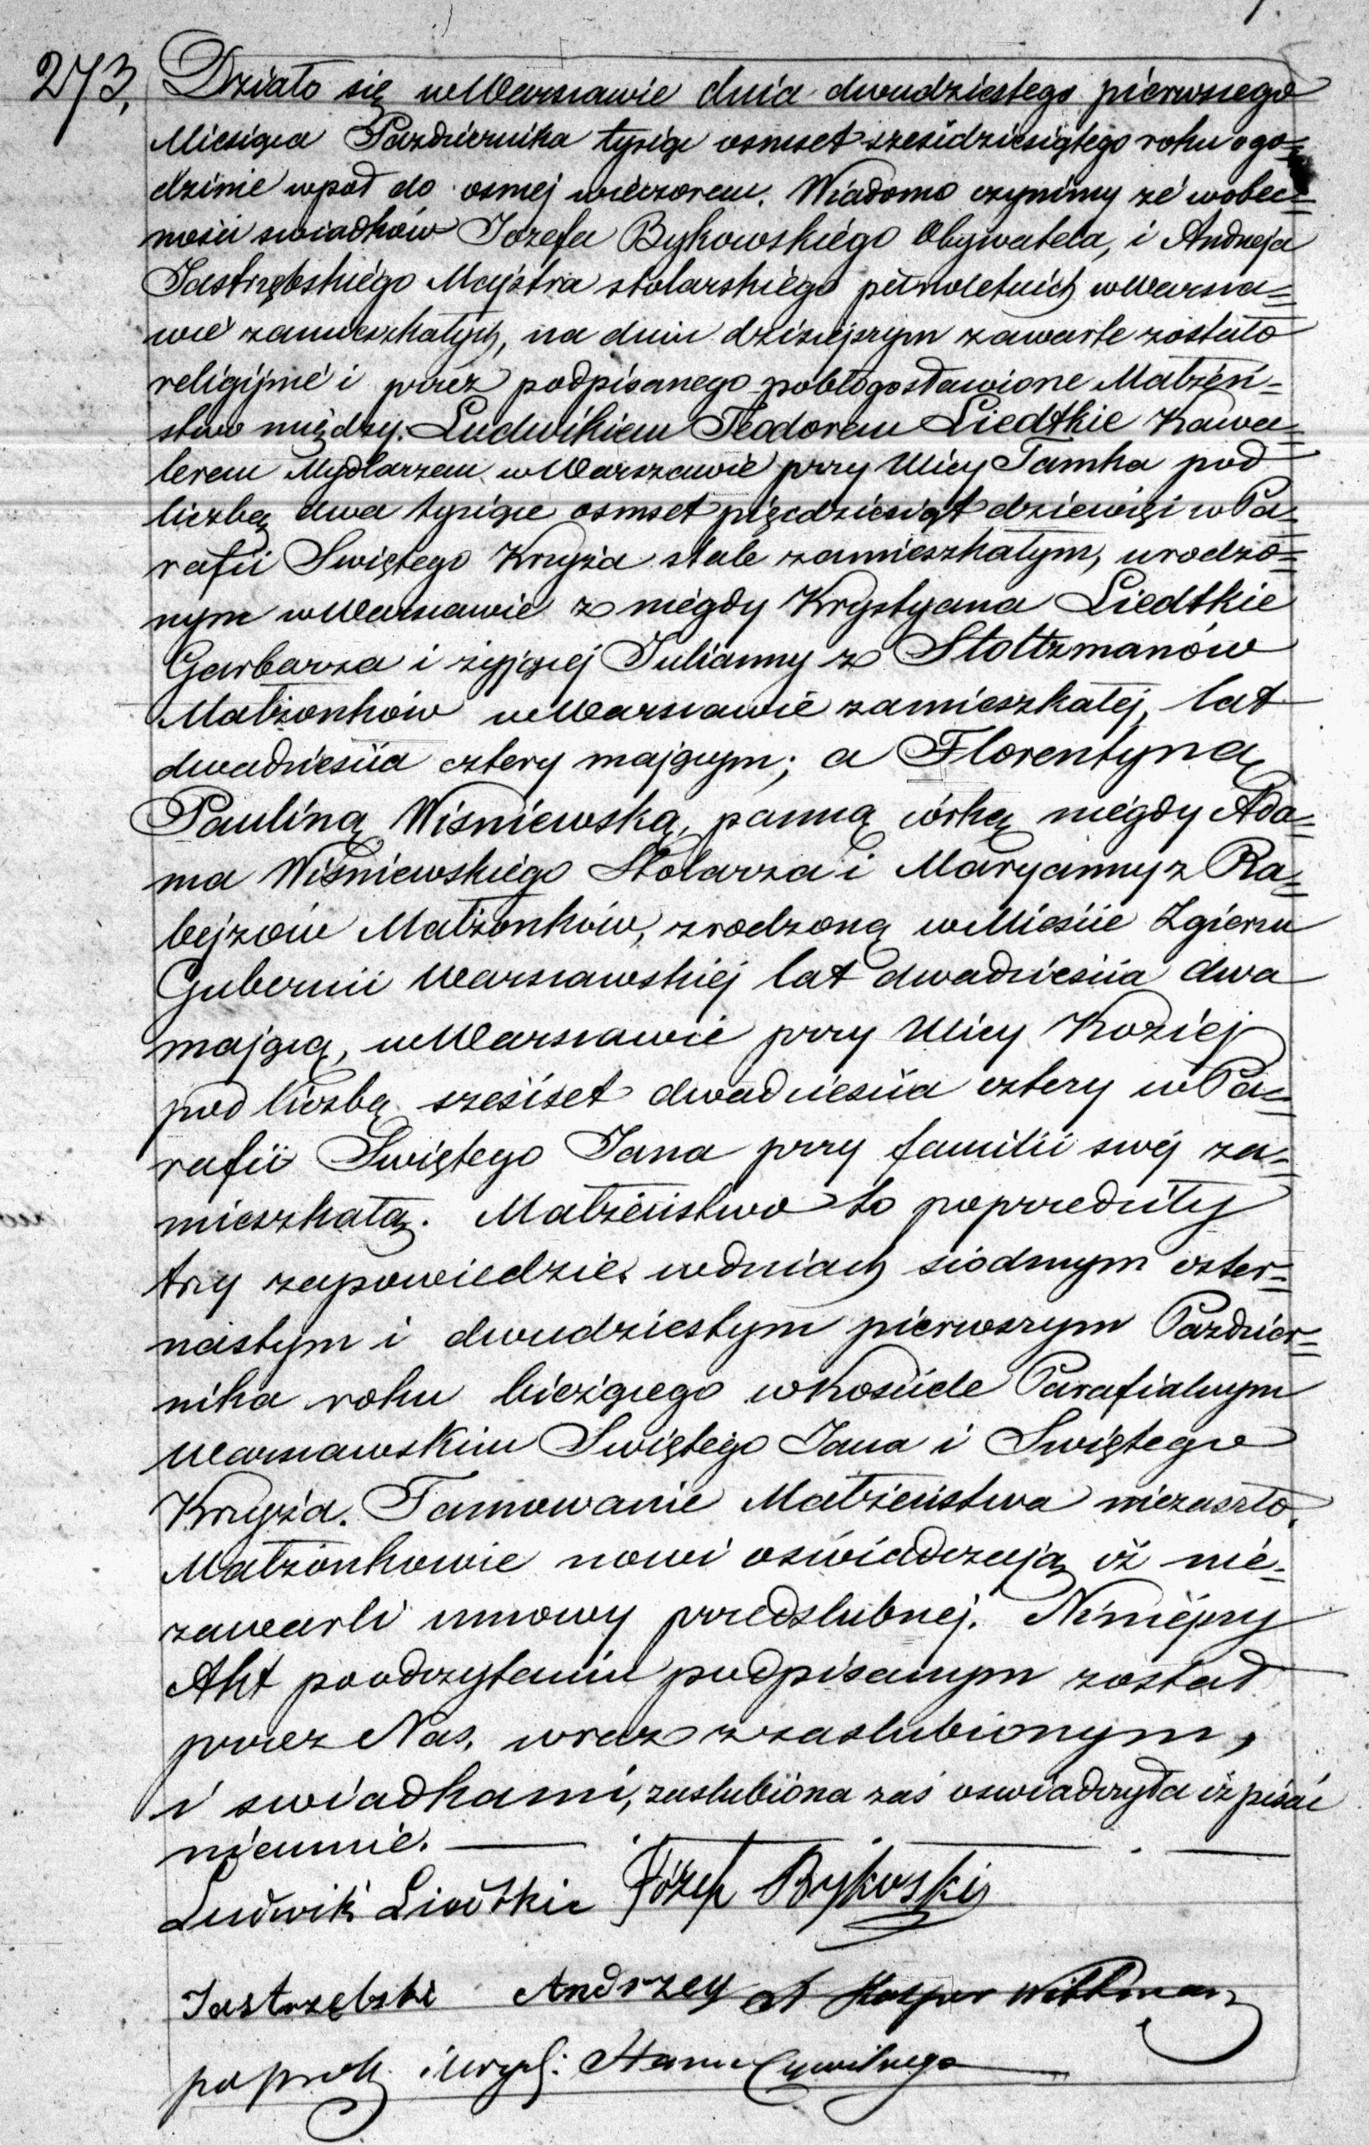 273. Działo się w Warszawie dnia dwudziestego pierwszego
Miesiąca Pazdziernika tysiąc osmset sześćdziesiątego roku o go=
dzinie wpoł do osmej wieczorem. Wiadomo czynimy że wobec=
ności swiadków Jozefa Bykowskiégo Obywatela, i Andrzeja
Jastrzębskiégo Majstra stolarskiégo pełnoletnich w Warsza=
wie zamieszkałych, na dniu dzisiejszym zawarte zostało
religijne i przez podpisanego pobłogosławione Małżeń=
stwo między: Ludwikiem Teodorem Liedtkie Kawa=
lerem Mydlarzem w Warszawie przy Ulicy Tamka pod
liczbą dwa tysiące osmset pięcdziesiąt dziewięć w Pa=
rafii Swiętego Krzyża stale zamieszkałym, urodzo=
nym w Warszawie z niegdy Krystyana Liedtkie
Garbarza i żyjącej Julianny z Stoltzmanów
Małżonków w Warszawie zamieszkałej, lat
dwadzieścia cztery mającym; a Florentyną
Pauliną Wiśniewską, panną córką niegdy Ada=
ma Wiśniewskiégo Stolarza i Maryanny z Ra=
bejzów Małżonków, zrodzoną w Mieście Zgierzu
Gubernii Warszawskiéj lat dwadzieścia dwa
mającą, w Warszawie przy Ulicy Koziej
pod liczbą szesćset dwadzieścia cztery w Pa=
rafii Swiętego Jana przy familii swéj za=
mieszkałą. Małżeństwo to poprzedziły
trzy zapowiedzie w dniach siodmym czter=
nastym i dwudziestym pierwszym Pazdzier=
nika roku bieżącego w Kosciele Parafialnym
Warszawskim Swiętégo Jana i Swiętego
Krzyża. Tamowanie Małżeństwa niezaszło.
Małżonkowie nowi oświadczają iż nie=
zawarli umowy przedslubnej. Niniéjszy
Akt po odczytaniu podpisanym został
przez Nas, wraz z zaslubionym,
i swiadkami, zaslubiona zaś oswiadczyła iż pisać
nieumie.
Ludwik Liedtkie Józef Bykowski
Jastrzębski Andrzey X Kasper Wittman
po prob. i Urzęd: Stanu Cywilnego